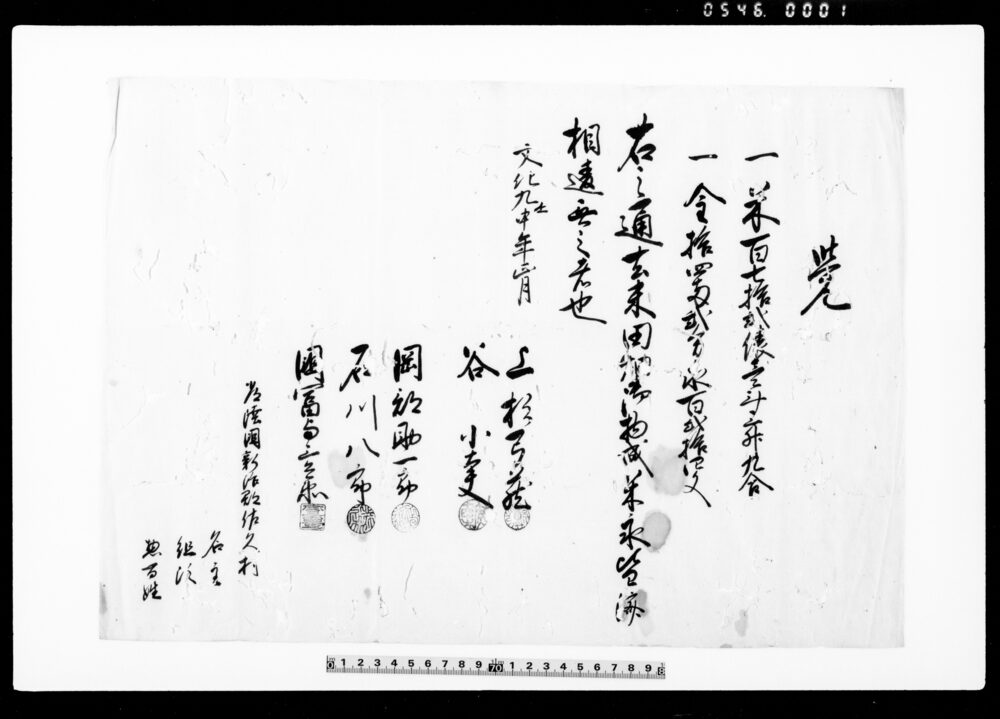 0546. 0001
覚
一 米百七拾弐俵壱斗壱升九合
一 金拾四両弐分永百弐拾四文
右之通去未田畑御物成米永皆済
相違無之者也
文化九申年正月
上松弓蔵
谷小太夫
岡部助一郎
石川八郎
関冨右
常陸国新治郡佐久村
名主
組頭
惣百姓
0 1 2 3 4 5 6 7 8 9 10 1 2 3 4 5 6 7 8 9